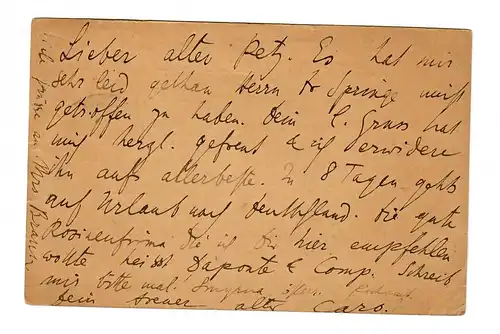 Lieber alter Petz. Es hat mir
sehr leid gethan Herrn Dr Springe nicht
getroffen zu haben. Dein l. Gruss hat
mich herzl. gefreut & ich erwidere
ihn aufs allerbeste. In 8 Tagen gehts
auf Urlaub nach Deutschland. Die gute
Rosinenfirma die ich Dir hier empfehlen
wollte heisst Daponte & Comp. Schreib
mir bitte mal. Smyrna
Dein treuer alter Caro.
Grüsse an Mrs Braun